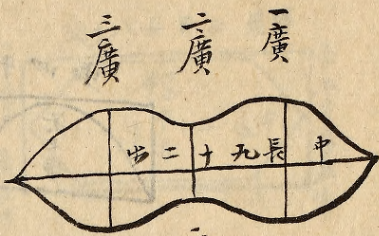 一廣
二廣
三廣
中長九十二步